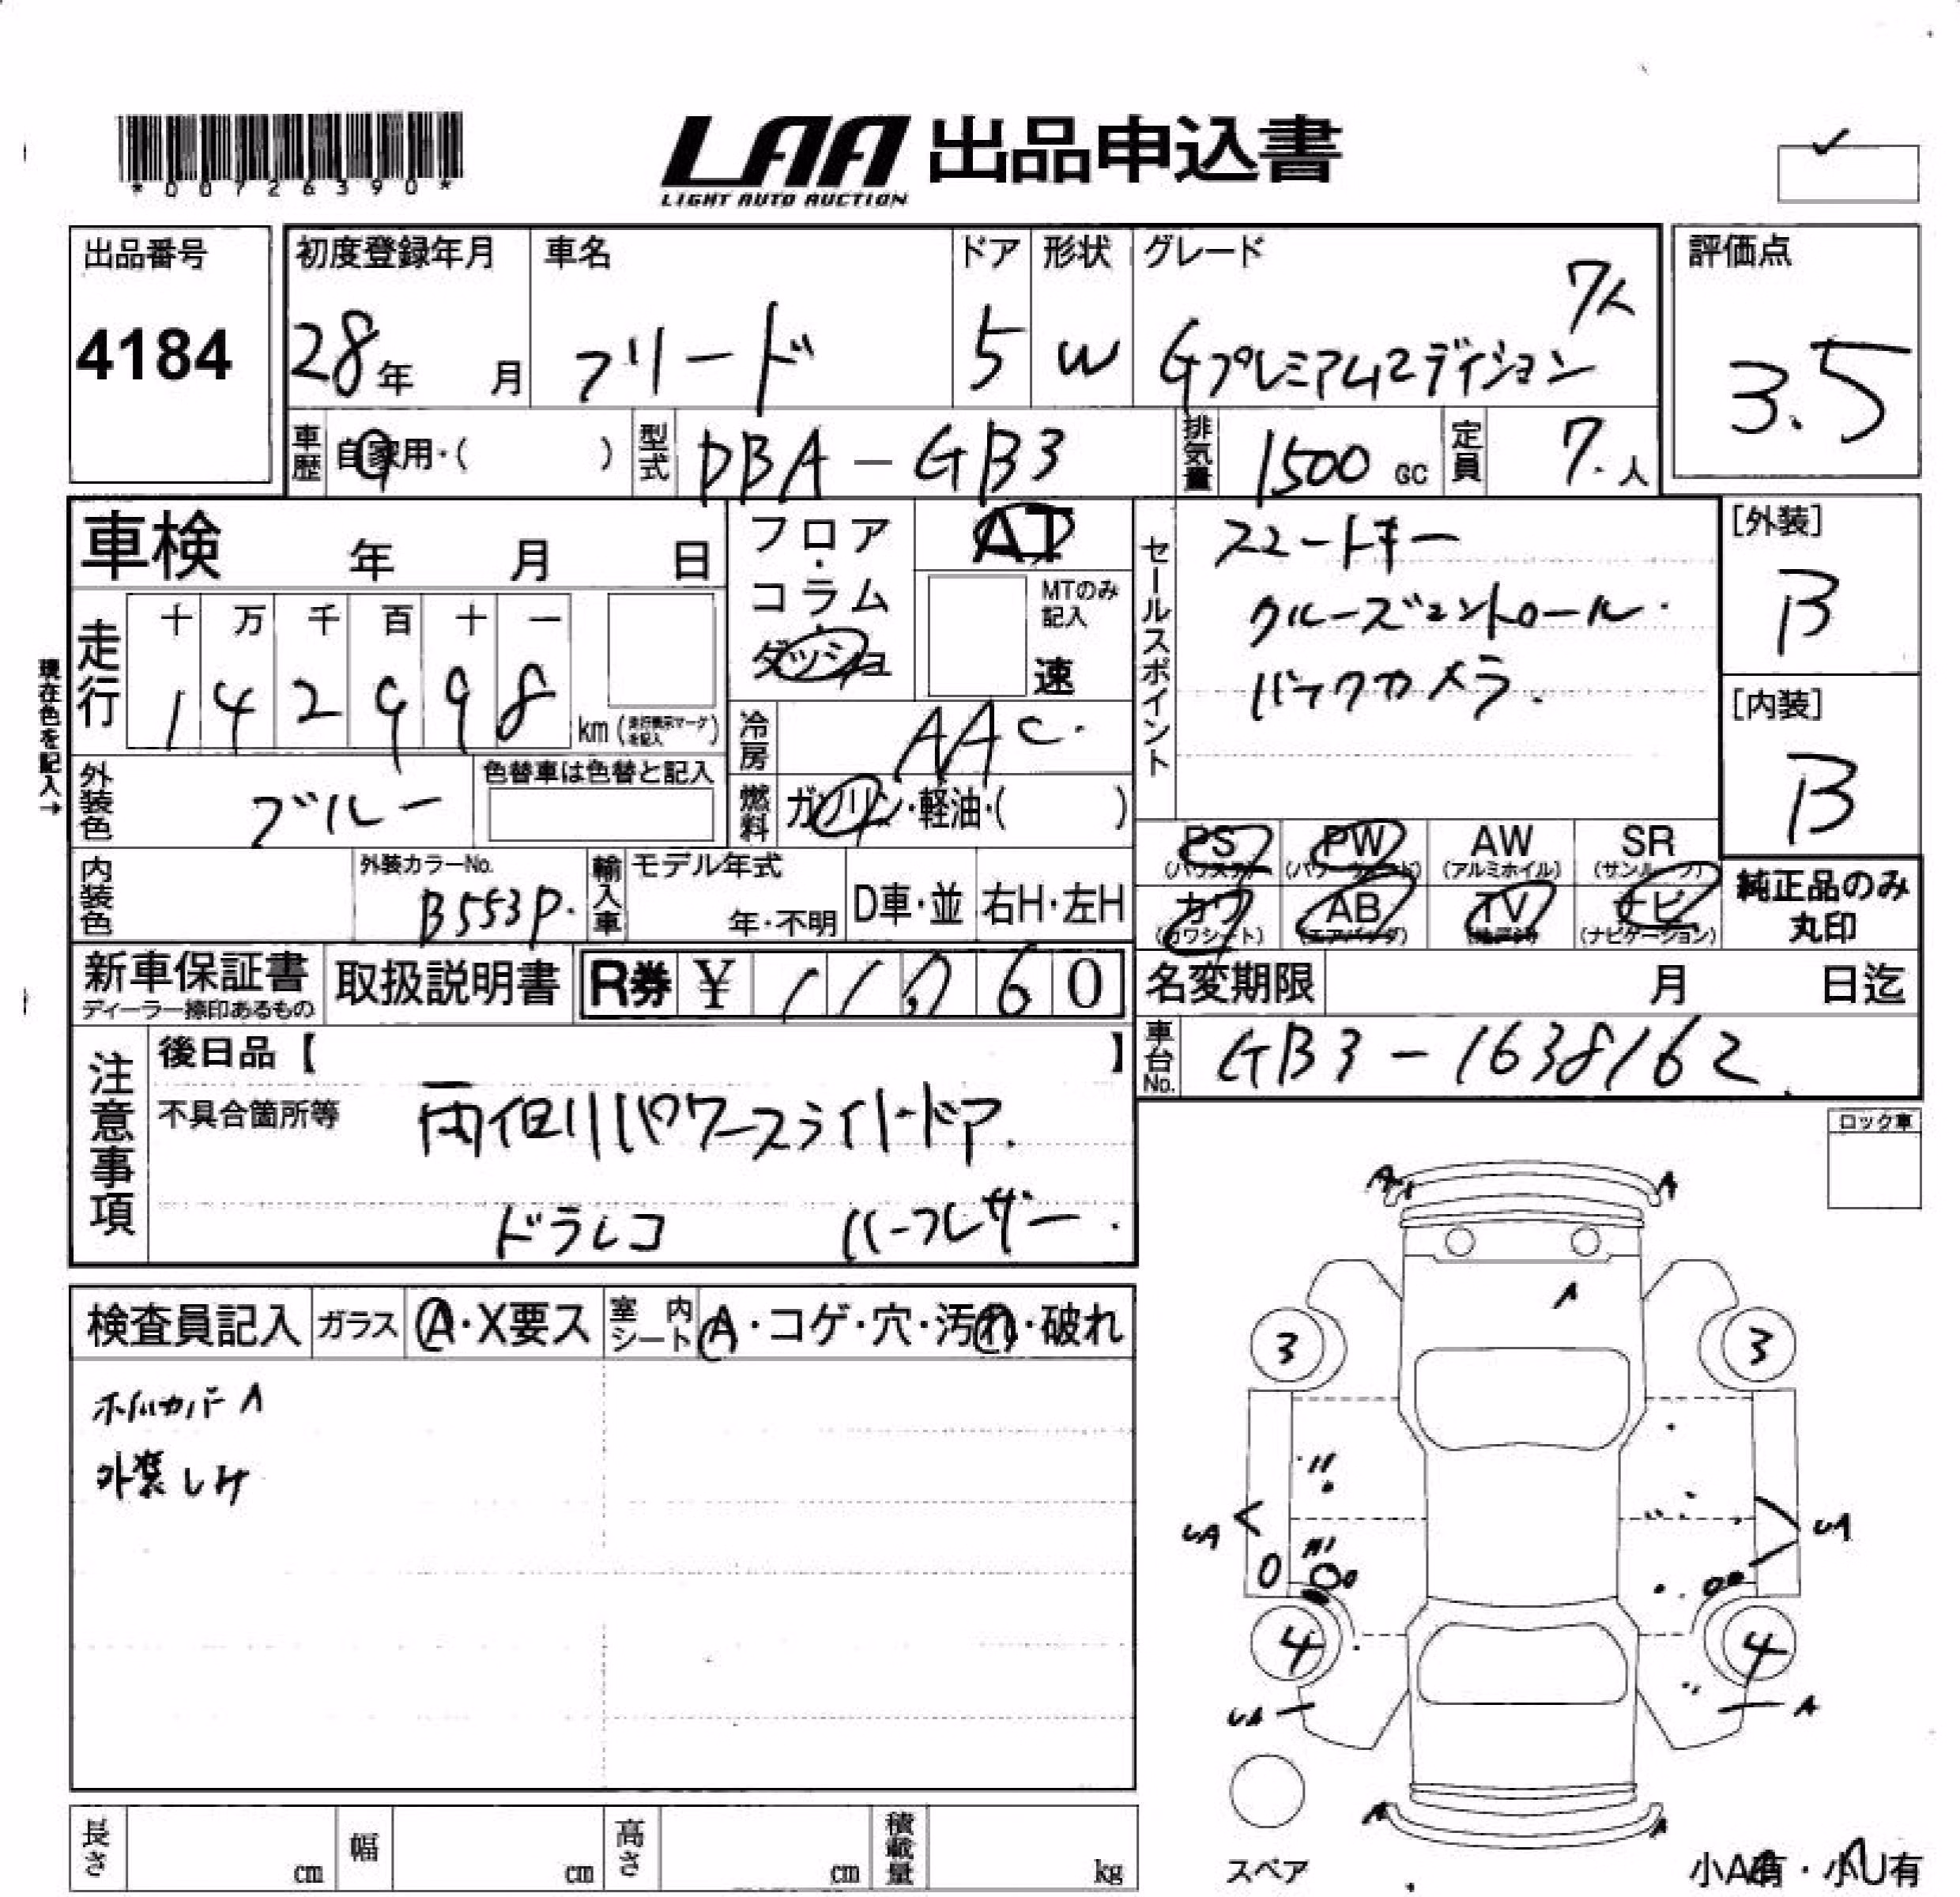 *00726390*
LAA 出品申込書
LIGHT AUTO AUCTION
出品番号
4184
初度登録年月
28年 月
車名
フリード
ドア
5
形状
W
グレード
7人
Gプレミアムエディション
評価点
3.5
車歴
自家用・( )
型式
DBA-GB3
排気量
1500 GC
定員
7.人
車検 年 月 日
現在色を記入→
走行
十 万 千 百 十 一
1 4 2 9 9 8
km (走行表示マークを記入)
フロア・コラム・ダッシュ
AT
MTのみ記入
速
冷房
AAC.
燃料
ガソリン・軽油・( )
セールスポイント
スマートキー
クルーズコントロール.
バックカメラ.
[外装]
B
[内装]
B
外装色
ブルー
色替車は色替と記入
内装色
外装カラーNo.
B553P.
輸入車
モデル年式
年・不明
D車・並
右H・左H
PS
(パワステ)
PW
(パワーウィンド)
AW
(アルミホイル)
SR
(サンルーフ)
カワ
(カワシート)
AB
(エアバッグ)
TV
ナビ
(ナビゲーション)
純正品のみ
丸印
新車保証書
ディーラー捺印あるもの
取扱説明書
R券 ¥ 11,060
名変期限 月 日迄
車台No.
GB3-1638162
注意事項
後日品【 】
不具合箇所等
両側パワースライドドア.
ドラレコ ハーフレザー.
ロック車
検査員記入
ガラス
A・X要ス
室内シート
A・コゲ・穴・汚れ・破れ
ホイルカバーA
外装しみ
A A
A
3 3
UA UA
4 4
UA A
A A
スペア
小A有・小U有
長さ cm
幅 cm
高さ cm
積載量 kg